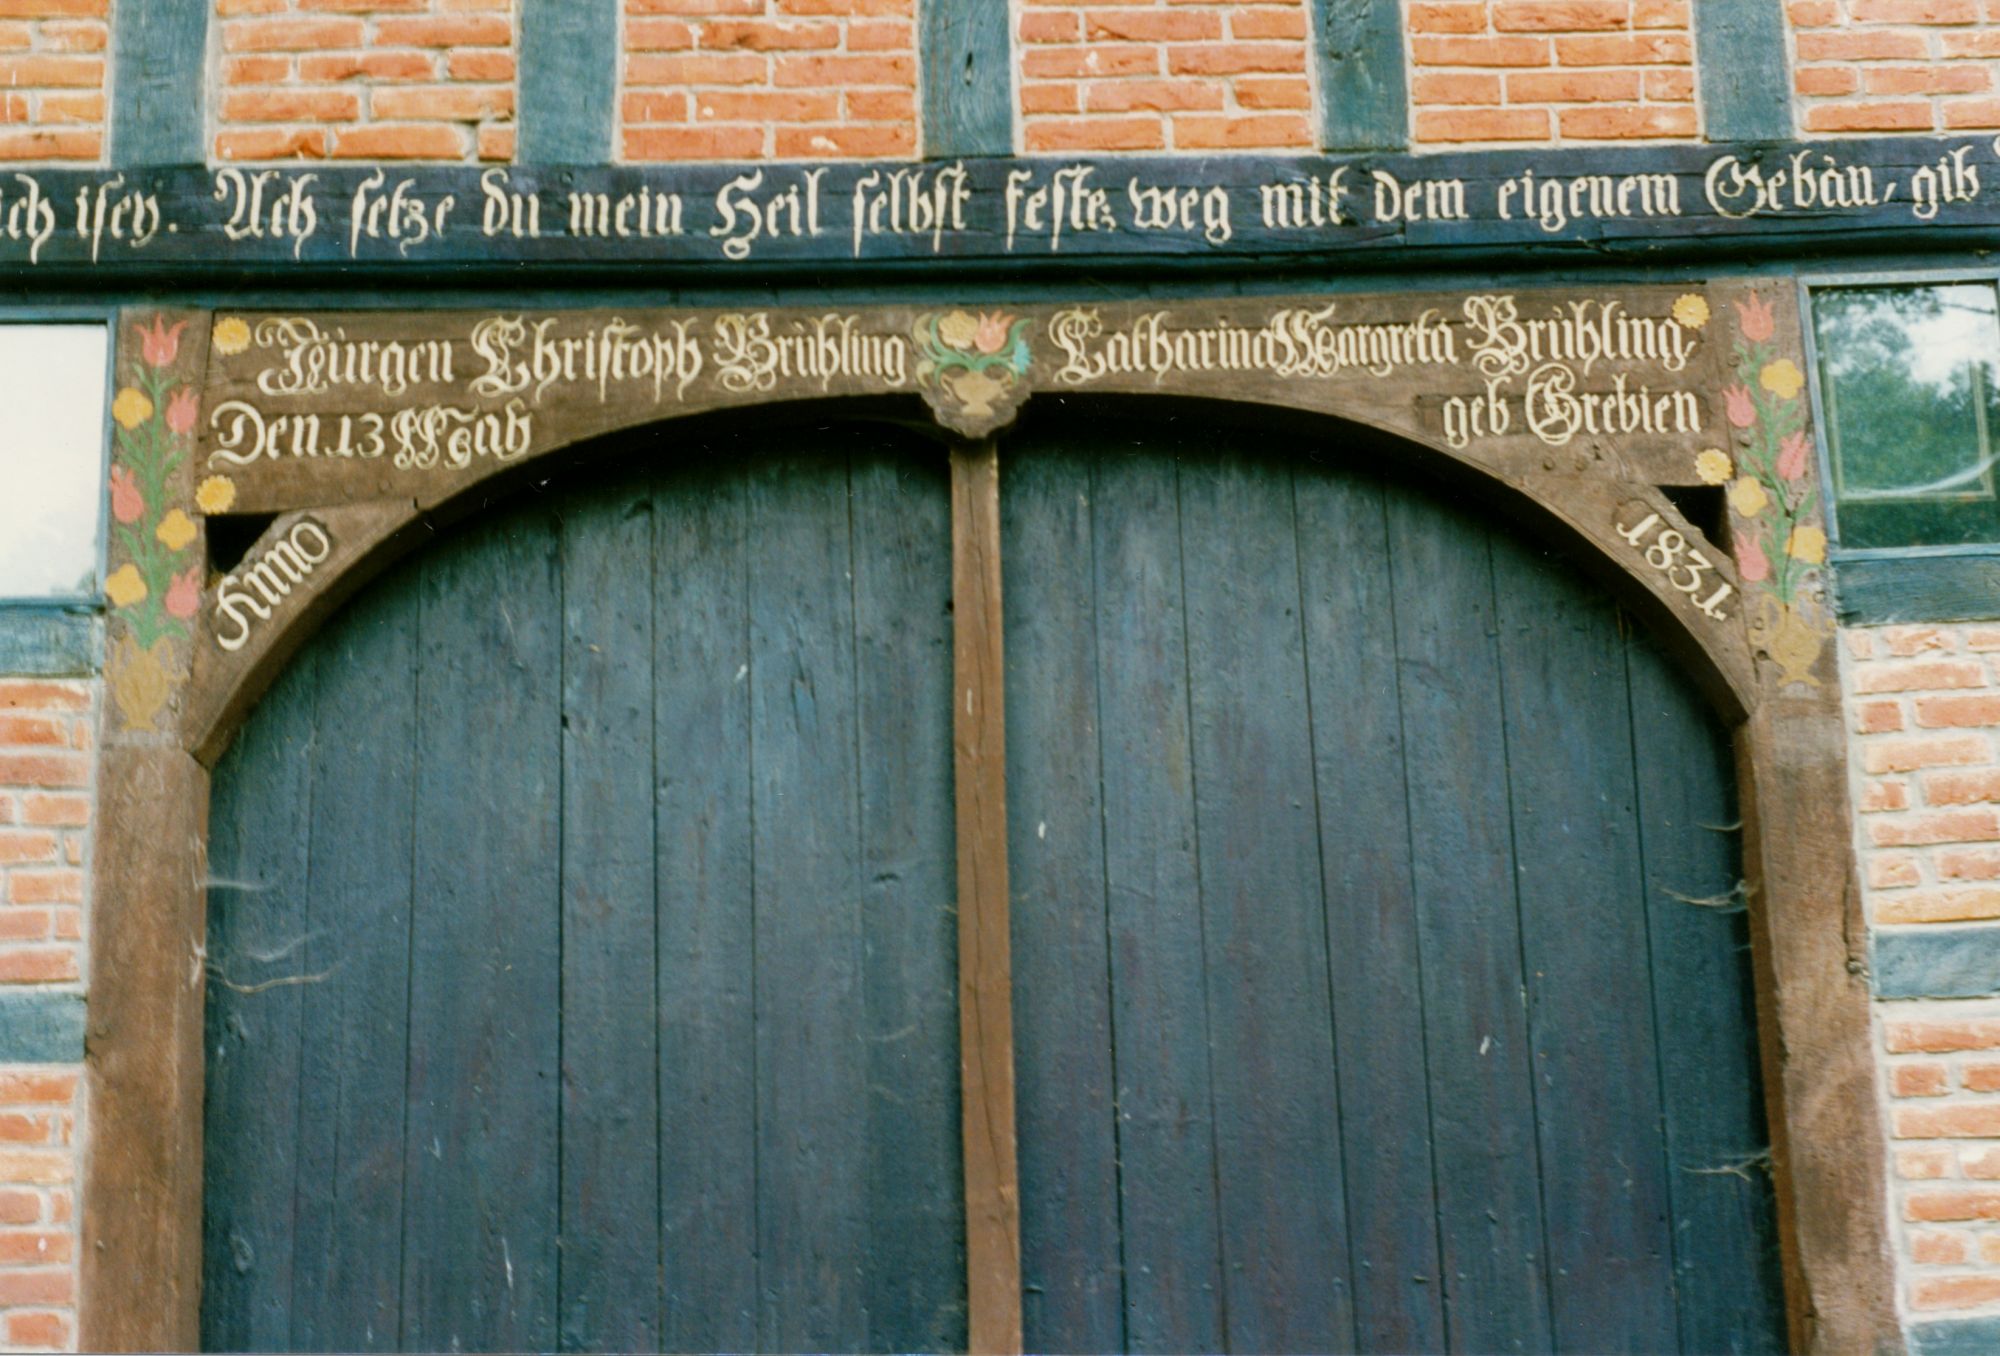 ich isey. Ach setze du mein Heil selbst feste, weg mit dem eigenem Gebäu, gib
Jürgen Christoph Brühling Catharina Margreta Brühling,
Den 13 May geb Grebien
Anno 1831.